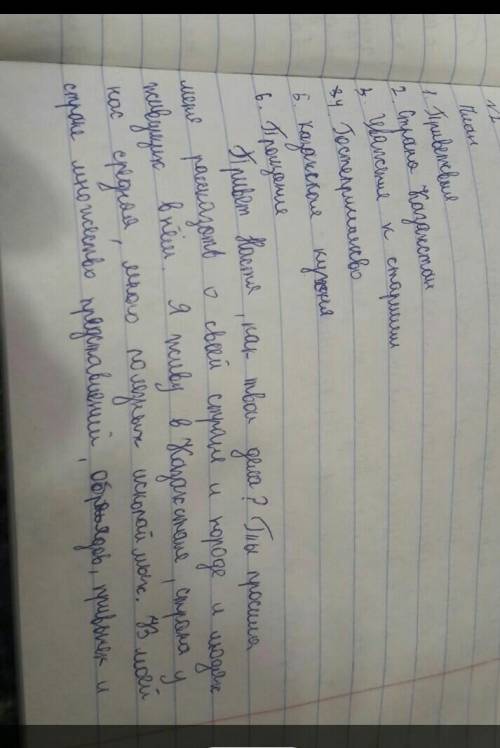 План
1. Приветствие
2. Страна Казахстан
3. Уважение к старшим
4. Гостеприимство
5. Казахская кухня
6. Прощание
Привет Настя, как твои дела? Ты просила
меня рассказать о своей стране и народе и людях
живущих в нём. Я живу в Казахстане, страна у
нас средняя, много полезных ископаймых. Из моей
стране множество представлений, обрядов, привычек и